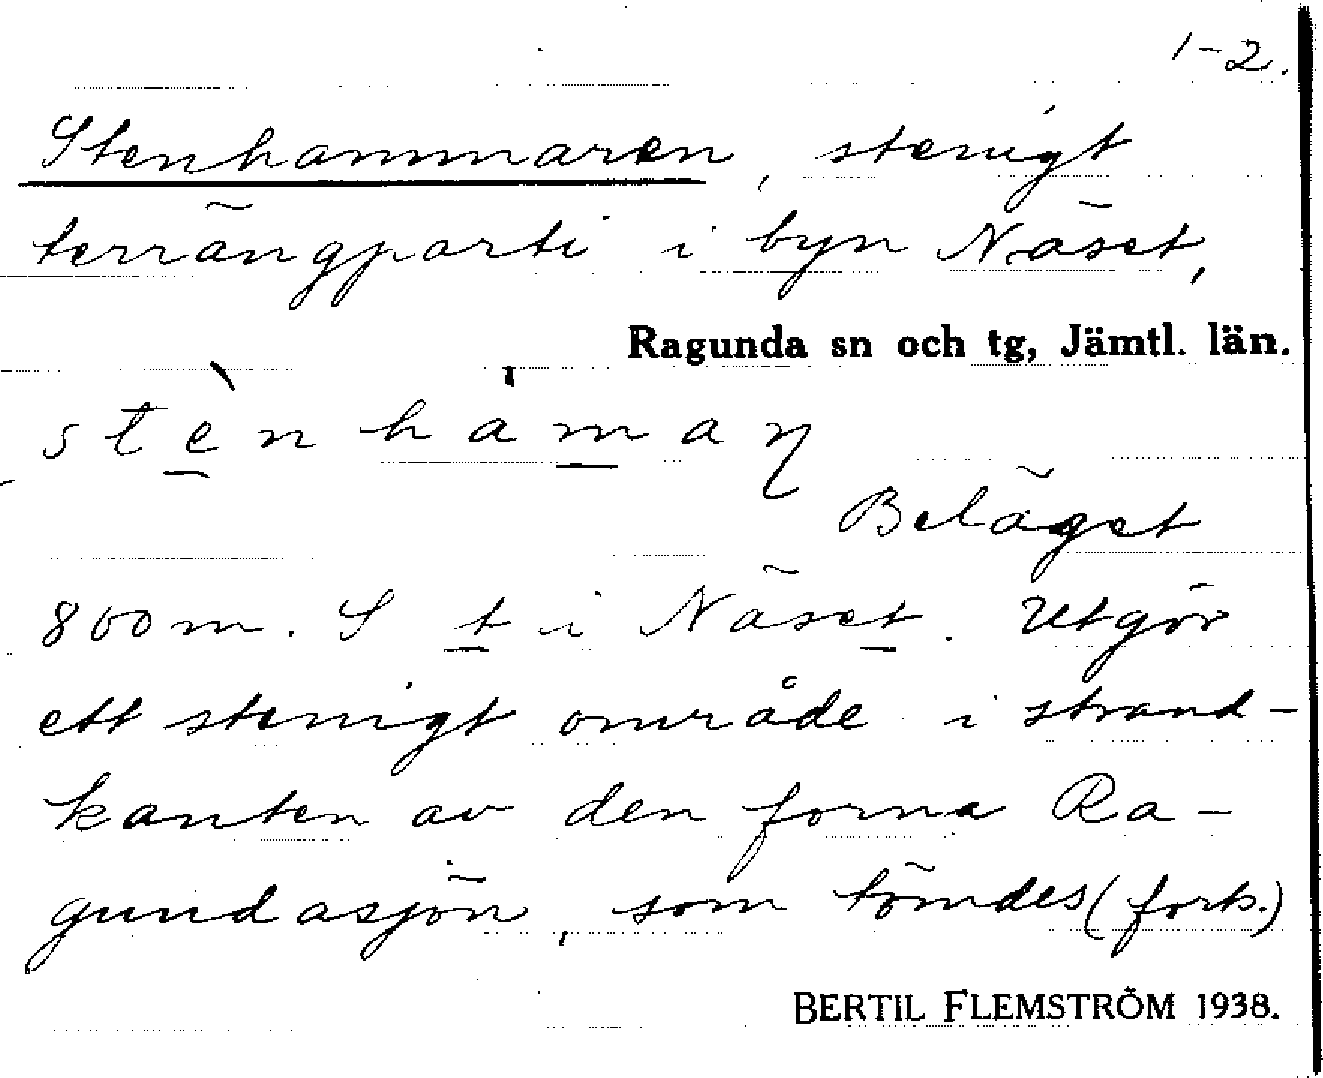 1-2.
Stenhammaren, stenigt
terrängparti i byn Näset,
Ragunda sn och tg, Jämtl. län.
stènhámaŋ
Beläget
800 m. S t i Näset. Utgör
ett stenigt område i strand-
kanten av den forna Ra-
gundasjön, som tömdes (forts.)
BERTIL FLEMSTRÖM 1938.